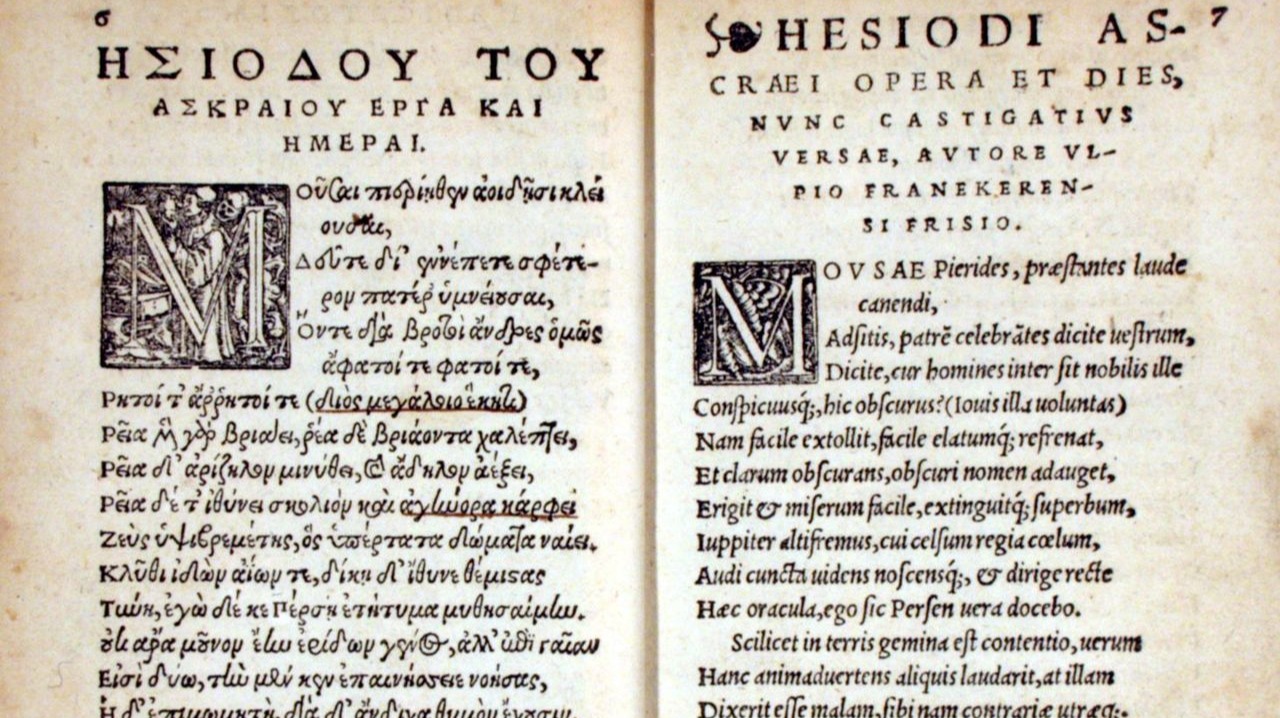 6
ΗΣΙΟΔΟΥ ΤΟΥ
ΑΣΚΡΑΙΟΥ ΕΡΓΑ ΚΑΙ
ΗΜΕΡΑΙ.
ΜΟῦσαι πιερίηθεν ἀοιδῇσι κλεί
ουσαι,
Δεῦτε δί' ἐννέπετε σφέτε-
ρον πατέρ' ὑμνείουσαι,
Ὅντε διὰ βροτοὶ ἄνδρες ὁμῶς
ἄφατοί τε φατοί τε,
Ρητοί τ' ἄρρητοί τε (διὸς μεγάλοιο ἕκητι)
Ρεῖα μὲν γὰρ βριάει, ῥέα δὲ βριάοντα χαλέπτει,
Ρεῖα δ' ἀρίζηλον μινύθει, καὶ ἄδηλον ἀέξει,
Ρεῖα δέ τ' ἰθύνει σκολιὸν καὶ ἀγήνορα κάρφει
Ζεὺς ὑψιβρεμέτης, ὃς ὑπέρτατα δώματα ναίει.
Κλῦθι ἰδὼν ἀΐων τε, δίκῃ δ' ἴθυνε θέμιστας
Τύνη, ἐγὼ δέ κε Πέρσῃ ἐτήτυμα μυθησαίμην.
οὐκ ἄρα μοῦνον ἔην ἐρίδων γένος, ἀλλ' ἐπὶ γαῖαν
Εἰσὶ δύω, τὴν μέν κεν ἐπαινήσειε νοήσας,
Ἡ δ' ἐπιμωμητὴ, διὰ δ' ἄνδιχα θυμὸν ἔχουσιν.
7
HESIODI AS-
CRAEI OPERA ET DIES,
NVNC CASTIGATIVS
VERSAE, AVTORE VL-
PIO FRANEKEREN-
SI FRISIO.
MOVSAE Pierides, præstantes laude
canendi,
Adsitis, patrẽ celebrãtes dicite uestrum,
Dicite, cur homines inter sit nobilis ille
Conspicuusq́;, hic obscurus? (Iouis illa uoluntas)
Nam facile extollit, facile elatumq́; refrenat,
Et clarum obscurans, obscuri nomen adauget,
Erigit & miserum facile, extinguitq́; superbum,
Iuppiter altifremus, cui celsum regia cœlum,
Audi cuncta uidens noscensq́;, & dirige recte
Hæc oracula, ego sic Persen uera docebo.
Scilicet in terris gemina est contentio, uerum
Hanc animaduertens aliquis laudarit, at illam
Dixerit esse malam, sibi nam contrariæ utræq;.